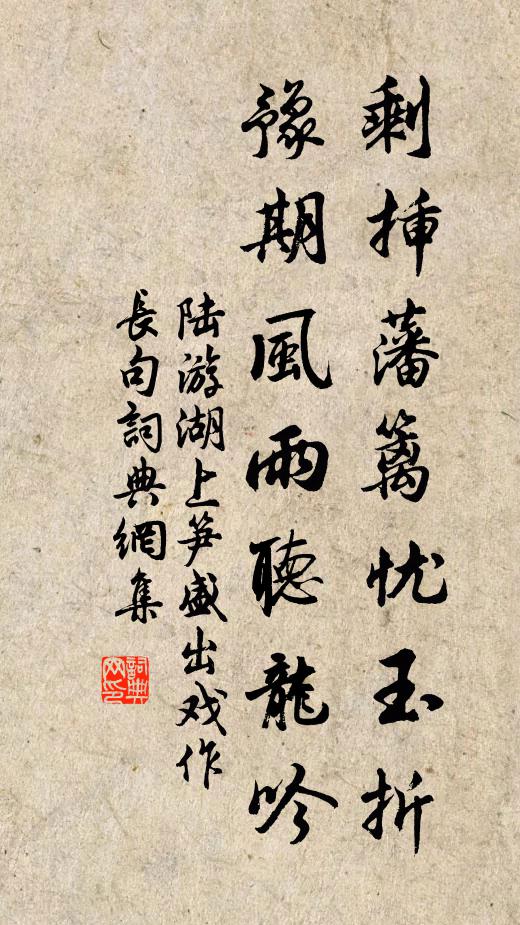 剩插藩篱忧玉折
豫期風雨聽龍吟
陆游湖上笋盛出戏作
長句詞典網集
詞典
网印